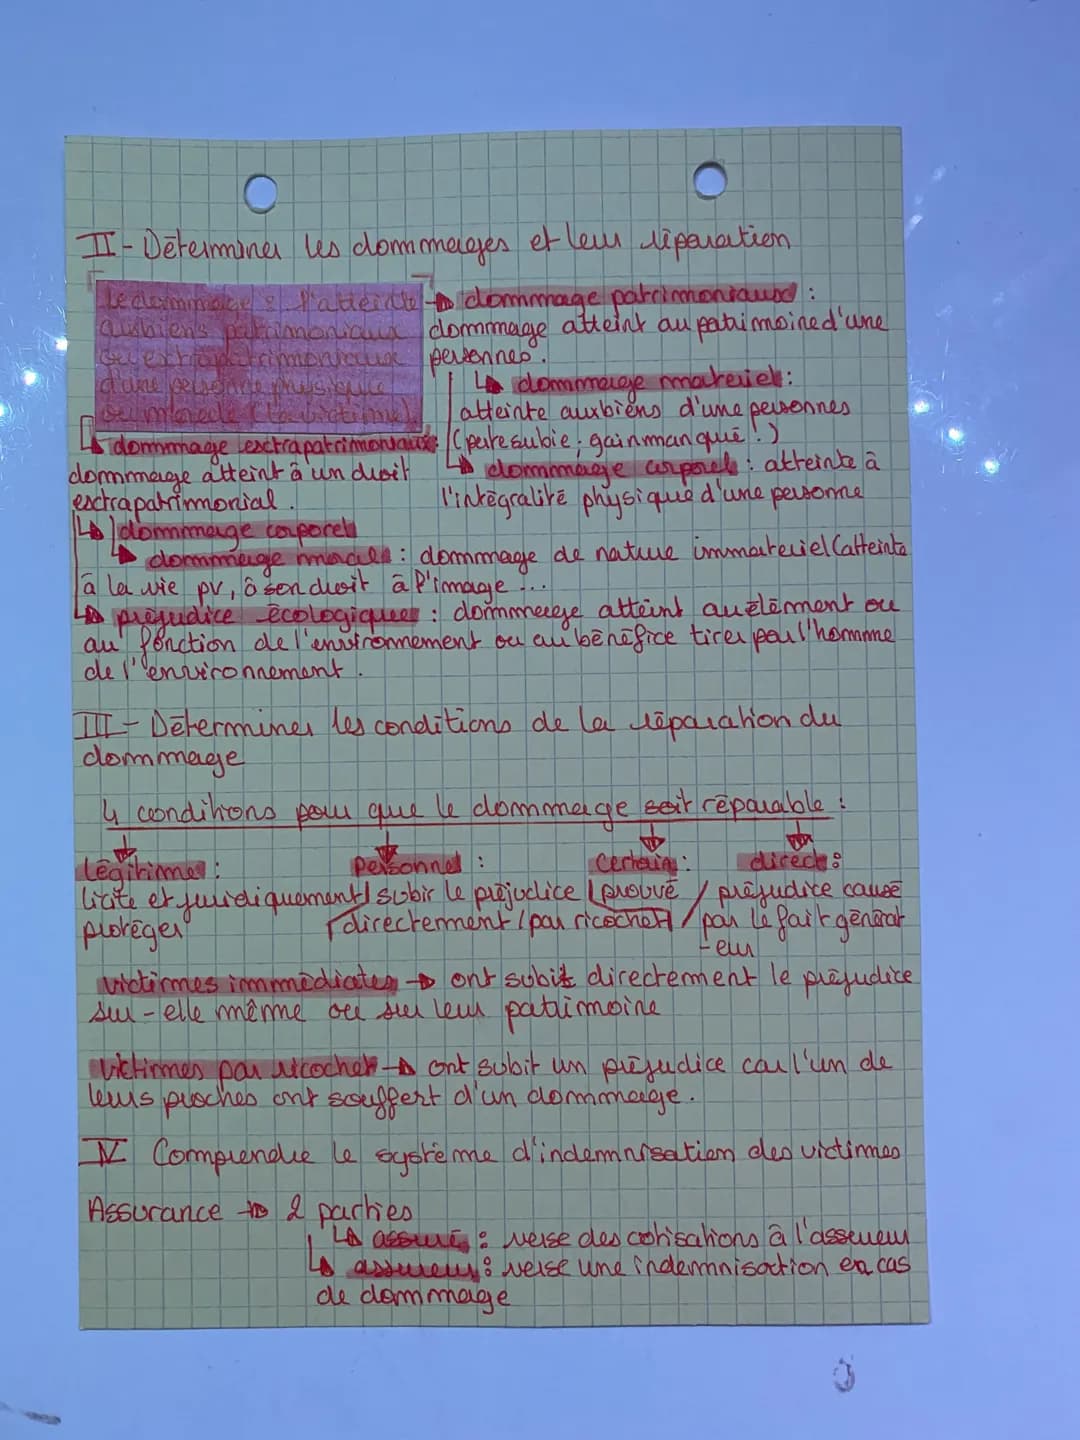 II - Déterminer les dommages et leur réparation
Le dommage : l'atteinte
aux biens patrimoniaux
ou extrapatrimoniaux
d'une personne physique
ou morale (la victime).
→ dommage patrimoniaux :
dommage atteint au patrimoine d'une
personnes.
↳ dommage materiel :
atteinte aux biens d'une personnes
(perte subie ; gain manqué !)
↳ dommage corporel : atteinte à
l'intégralité physique d'une personne
↳ dommage extrapatrimoniaux :
dommage atteint à un droit
extrapatrimonial.
↳ dommage corporel
↳ dommage moral : dommage de nature immateriel (atteinte
à la vie pv, à son droit à l'image ...
↳ préjudice écologiques : dommage atteint au élément ou
au fonction de l'environnement ou au bénéfice tirer par l'homme
de l'environnement.
III - Déterminer les conditions de la réparation du
dommage
4 conditions pour que le dommage soit réparable :
légitime : personnel : certain : direct :
licite et juridiquement / subir le préjudice / prouvé / préjudice causé
protéger directement / par ricochet / par le fait générat
-eur
victimes immédiates → ont subit directement le préjudice
sur-elle même ou sur leur patrimoine
victimes par ricochet → ont subit un préjudice car l'un de
leurs proches ont souffert d'un dommage.
IV Comprendre le système d'indemnisation des victimes
Assurance → 2 parties
↳ assuré : verse des cotisations à l'assureur
↳ assureur : verse une indemnisation en cas
de dommage